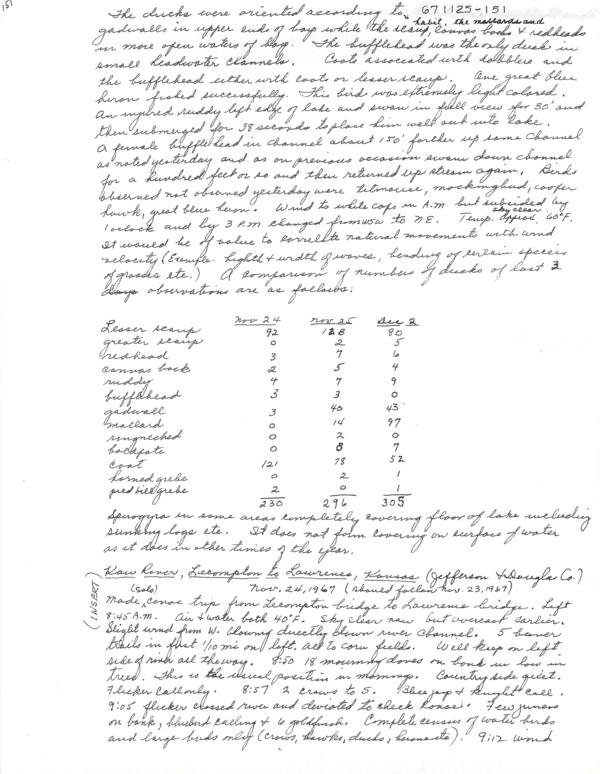 151
The ducks were oriented according to 671125-151
habit, the mallards and
gadwalls in upper end of bay while the scaup, canvas backs & redheads
in more open waters of bay. The bufflehead was the only duck in
small headwater channels. Coots associated with dabblers and
the bufflehead either with coots or lesser scaup. One great blue
heron fished successfully. This bird was extremely light colored.
An injured ruddy left edge of lake and swam in full view for 30' and
then submerged for 38 seconds to place him well out into lake.
A female bufflehead in channel about 150' farther up same channel
as noted yesterday and as on previous occasion swam down channel
for a hundred feet or so and then returned up stream again. Birds
observed not observed yesterday were titmouse, mockingbird, cooper
hawk, great blue heron. Wind to white caps in A.M but subsided by
1 oclock and by 3 P.M changed from WSW to NE. sky clear. Temp. approx. 60°F.
It would be of value to correlate natural movements with wind
velocity (Example. heighth & width of waves, bending of certain species
of grasses etc.) A comparison of numbers of ducks of last 3
days observations are as follows:
Nov 24 Nov 25 Dec 2
Lesser scaup 92 128 80
greater scaup 0 2 5
redhead 3 7 6
canvas back 2 5 4
ruddy 4 7 9
bufflehead 3 3 0
gadwall 3 40 43
mallard 0 14 97
ringnecked 0 2 0
baldpate 0 8 7
coot 121 78 52
horned grebe 0 2 1
pied bill grebe 2 0 1
230 296 305
Spirogyra in some areas completely covering floor of lake including
sunking logs etc. It does not form covering on surface of water
as it does in other times of the year.
(INSERT)
Kaw River, Lecompton to Lawrence, Kansas (Jefferson & Douglas Co.)
(solo) Nov. 24, 1967 (should follow Nov. 23, 1967)
Made conoe trip from Lecompton bridge to Lawrence bridge. Left
8:45 A.M. Air & water both 40°F. Sky clear now but overcast earlier.
Slight wind from W. blowing directly down river channel. 5 beaver
trails in first 1/10 mi on left, all to corn fields. Will keep on left
side of river all the way. 8:50 18 mourning doves on bank in low in
trees. This is the usual position in mornings. Country side quiet.
Flicker call only. 8:57 2 crows to S. Blue jay & knight call.
9:05 flicker crossed river and deviated to check conoe. Few juncos
on bank, bluebird calling & 6 goldfinch. Complete census of water birds
and large birds only (crows, hawks, ducks, herons etc). 9:12 wind